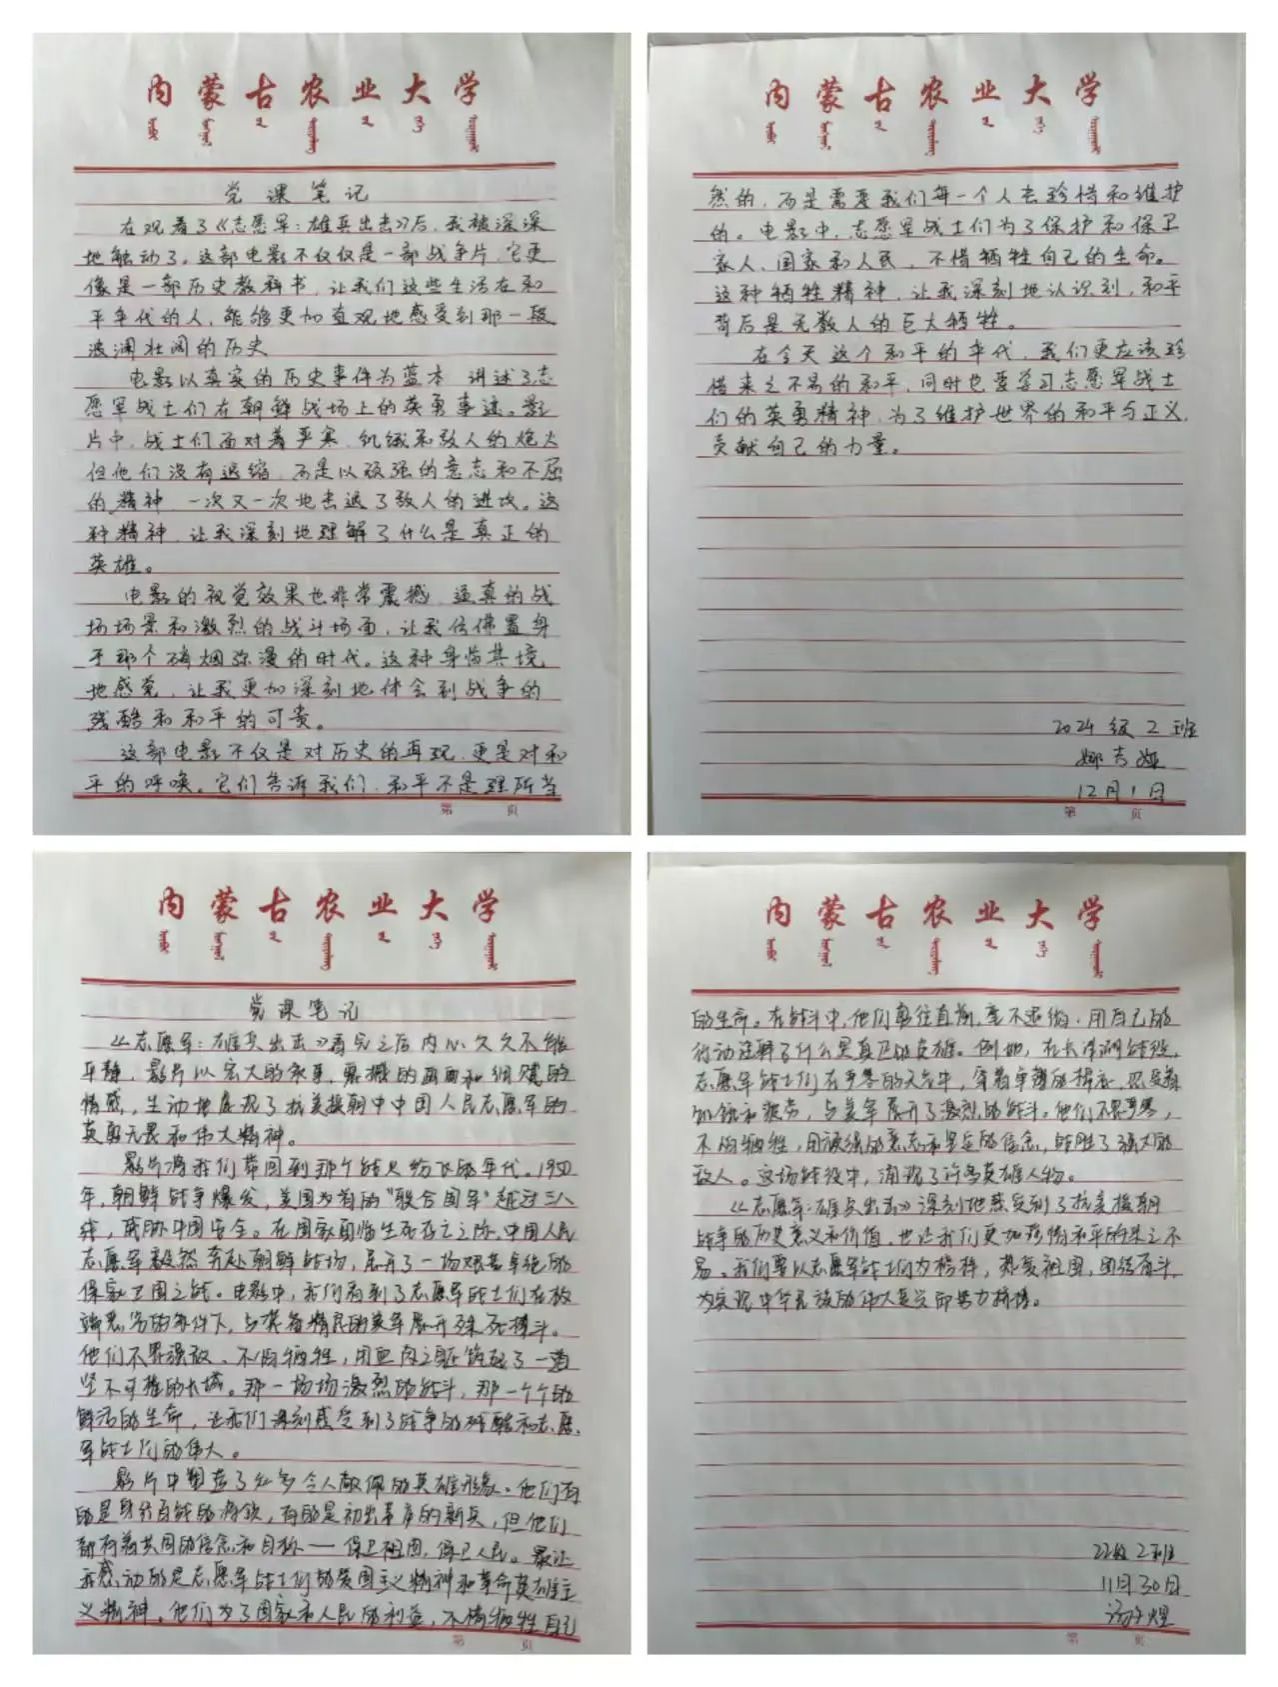 内蒙古农业大学
党课笔记
在观看了《志愿军：雄兵出击》后，我被深深
地触动了。这部电影不仅仅是一部战争片，它更
像是一部历史教科书，让我们这些生活在和
平年代的人，能够更加直观地感受到那一段
波澜壮阔的历史
电影以真实的历史事件为蓝本，讲述了志
愿军战士们在朝鲜战场上的英勇事迹。影
片中，战士们面对着严寒，饥饿和敌人的炮火
但他们没有退缩，而是以顽强的意志和不屈
的精神，一次又一次地击退了敌人的进攻。这
种精神，让我深刻地理解了什么是真正的
英雄。
电影的视觉效果也非常震撼，逼真的战
场场景和激烈的战斗场面，让我仿佛置身
于那个硝烟弥漫的时代。这种身临其境
地感觉，让我更加深刻地体会到战争的
残酷和和平的可贵。
这部电影不仅是对历史的再现，更是对和
平的呼唤。它们告诉我们，和平不是理所当
第 页
内蒙古农业大学
然的，而是需要我们每一个人去珍惜和维护
的。电影中，志愿军战士们为了保护和保卫
家人、国家和人民，不惜牺牲自己的生命。
这种牺牲精神，让我深刻地认识到，和平
背后是无数人的巨大牺牲。
在今天这个和平的年代，我们更应该珍
惜来之不易的和平，同时也要学习志愿军战士
们的英勇精神，为了维护世界的和平与正义，
贡献自己的力量。
2024级2班
娜吉娅
12月1日
第 页
内蒙古农业大学
党课笔记
《志愿军：雄兵出击》看完之后内心久久不能
平静，影片以宏大的叙事，震撼的画面和细腻的
情感，生动地展现了抗美援朝中中国人民志愿军的
英勇无畏和伟大精神。
影片将我们带回到那个战火纷飞的年代。1950
年，朝鲜战争爆发，美国为首的“联合国军”越过三八
线，威胁中国安全。在国家面临生死存亡之际，中国人民
志愿军毅然奔赴朝鲜战场，展开了一场艰苦卓绝的
保家卫国之战。电影中，我们看到了志愿军战士们在极
端恶劣的条件下，与装备精良的美军展开殊死搏斗。
他们不畏强敌、不怕牺牲，用血肉之躯筑起了一道
坚不可摧的长城。那一场场激烈的战斗，那一个个的
鲜活的生命，让我们深刻感受到了战争的残酷和志愿
军战士们的伟大。
影片中塑造了众多令人敬佩的英雄形象。他们有
的是身经百战的将领，有的是初出茅庐的新兵，但他们
都有着共同的信念和目标——保卫祖国，保卫人民。最让
我感动的是志愿军战士们的爱国主义精神和革命英雄主
义精神。他们为了国家和人民的利益，不惜牺牲自己
第 页
内蒙古农业大学
的生命。在战斗中，他们勇往直前，毫不退缩，用自己的
行动诠释了什么是真正的英雄。例如，在长津湖战役，
志愿军战士们在严寒的天气中，穿着单薄的棉衣，忍受着
饥饿和疲劳，与美军展开了激烈的战斗。他们不畏严寒，
不怕牺牲，用顽强的意志和坚定的信念，战胜了强大的
敌人。这场战役中，涌现了许多英雄人物。
《志愿军：雄兵出击》深刻地感受到了抗美援朝
战争的历史意义和价值，也让我们更加珍惜和平的来之不
易。我们要以志愿军战士们为榜样，热爱祖国，团结奋斗，
为实现中华民族的伟大复兴而努力拼搏。
22级2班
11月30日
第 页